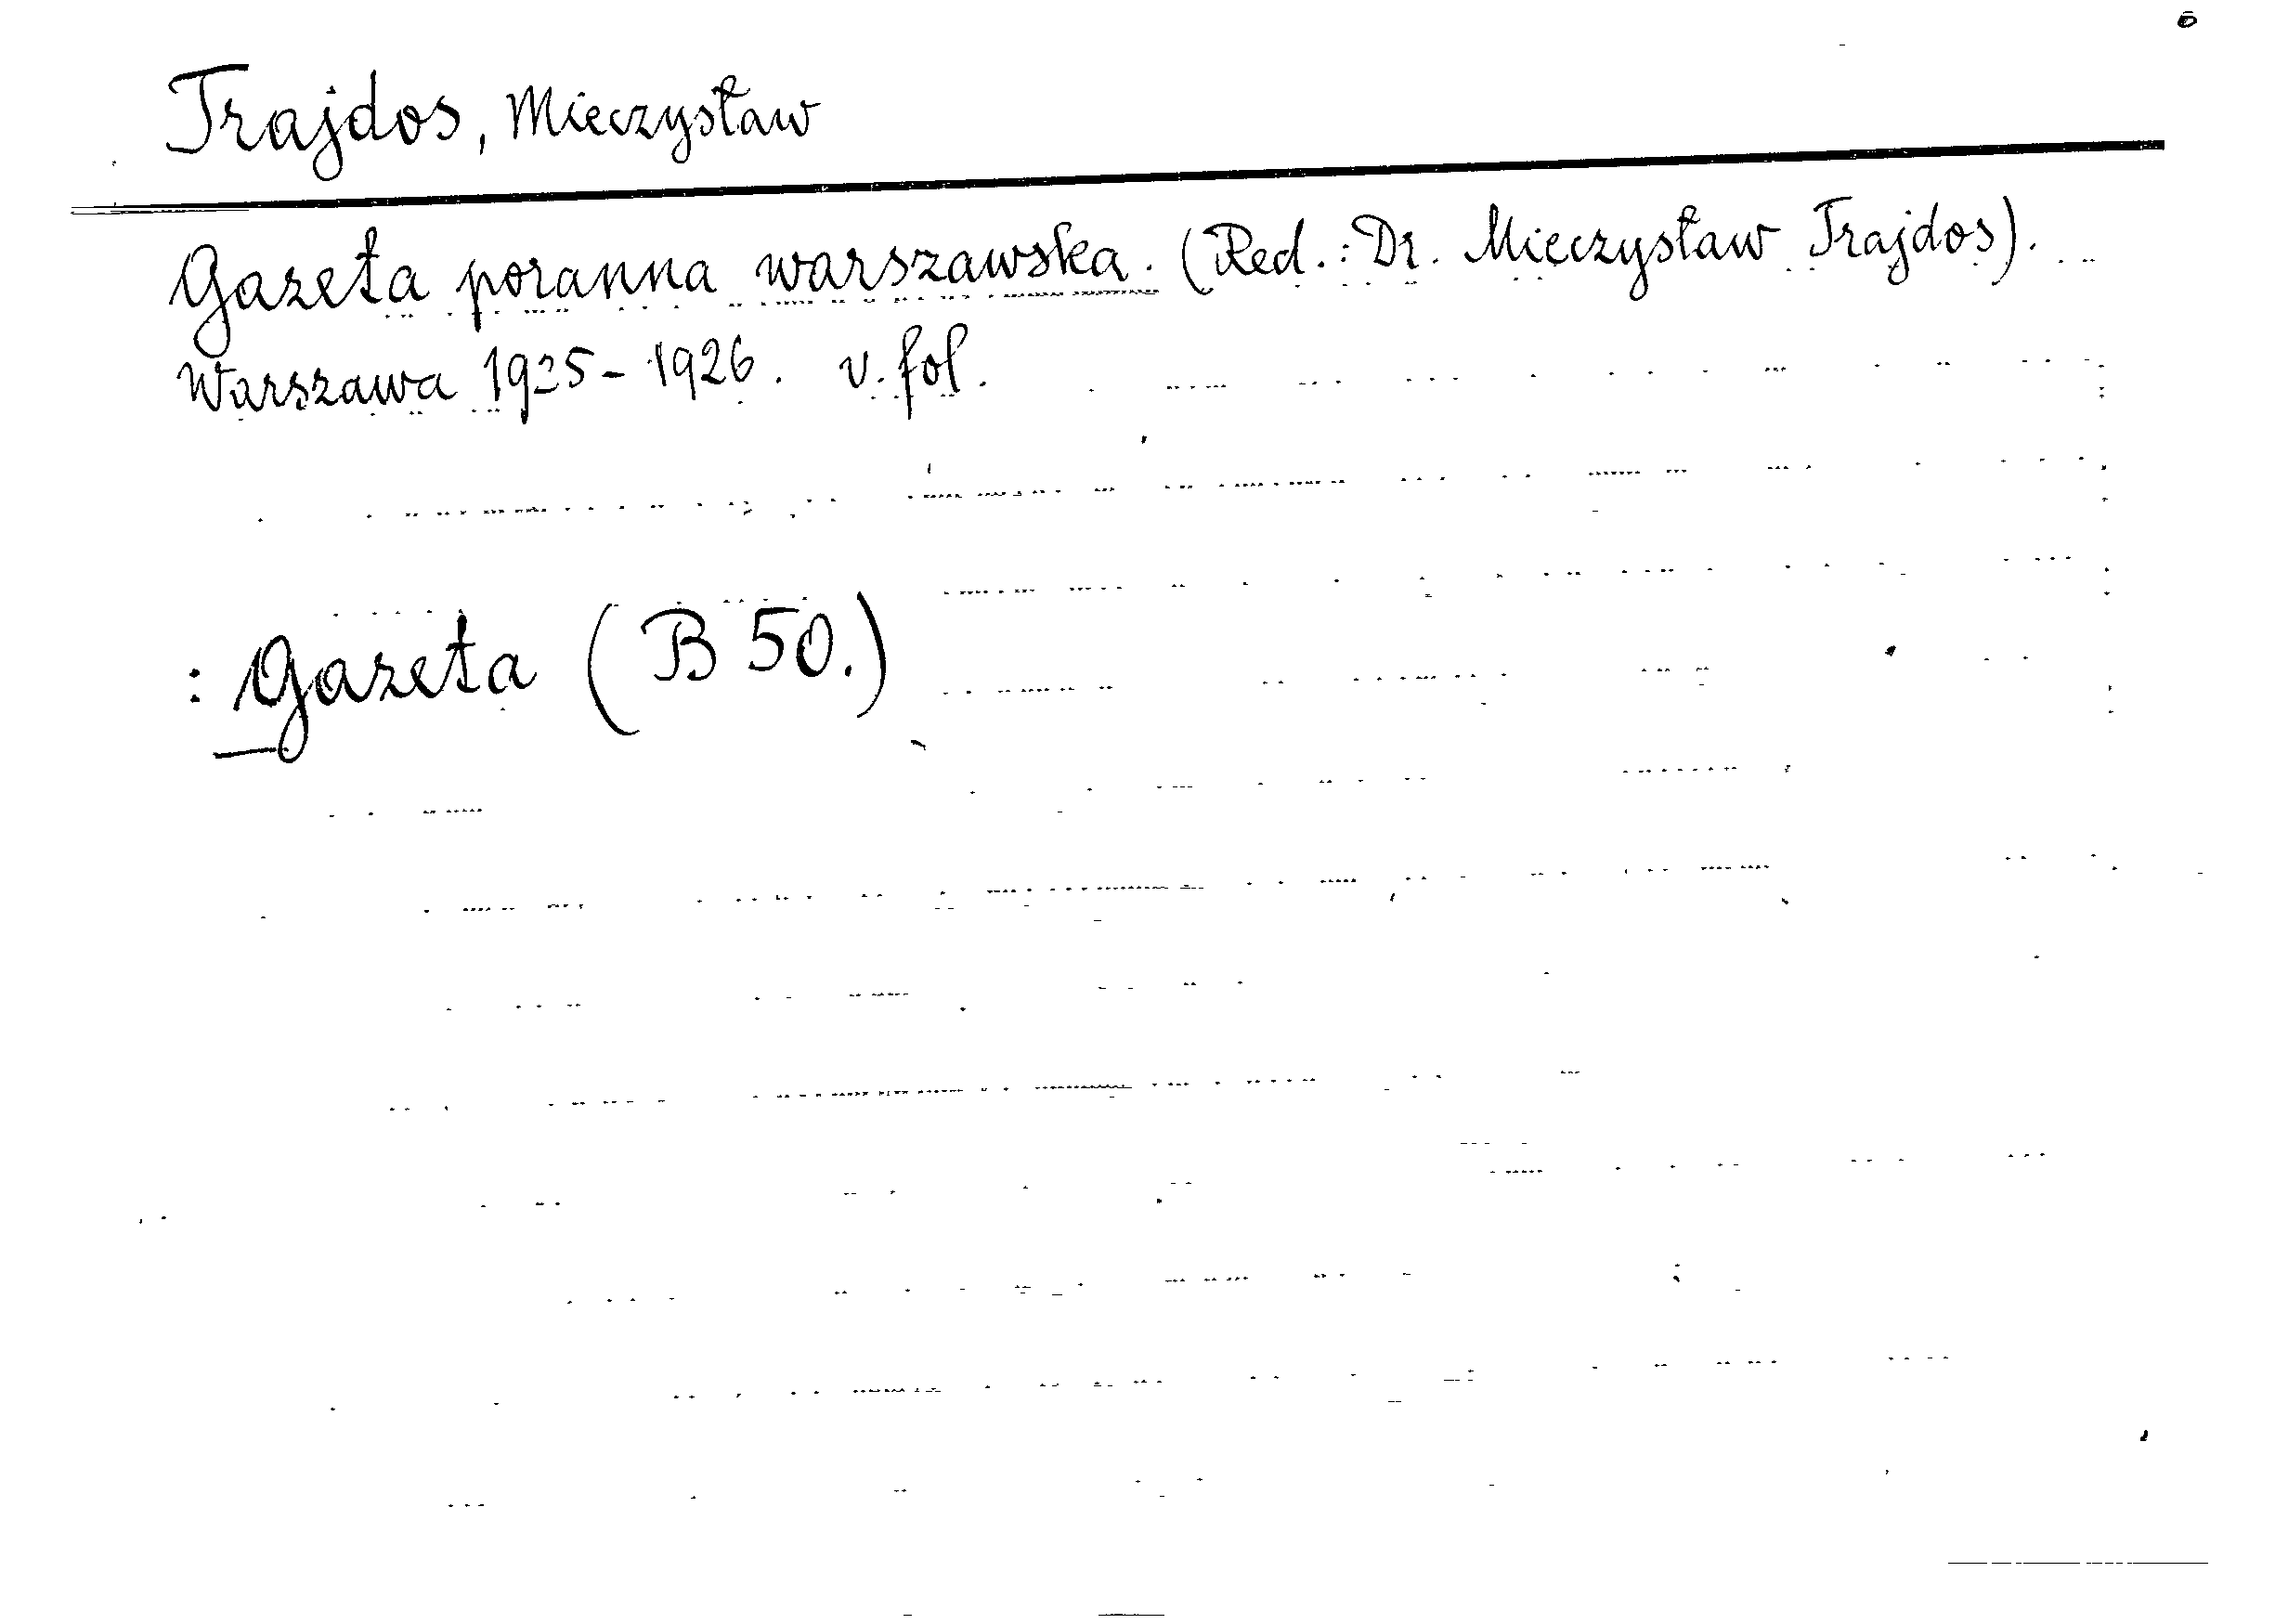 Trajdos, Mieczysław
Gazeta poranna warszawska. (Red.: Dr. Mieczysław Trajdos).
Warszawa 1925-1926. v. fol.
: Gazeta (B 50.)